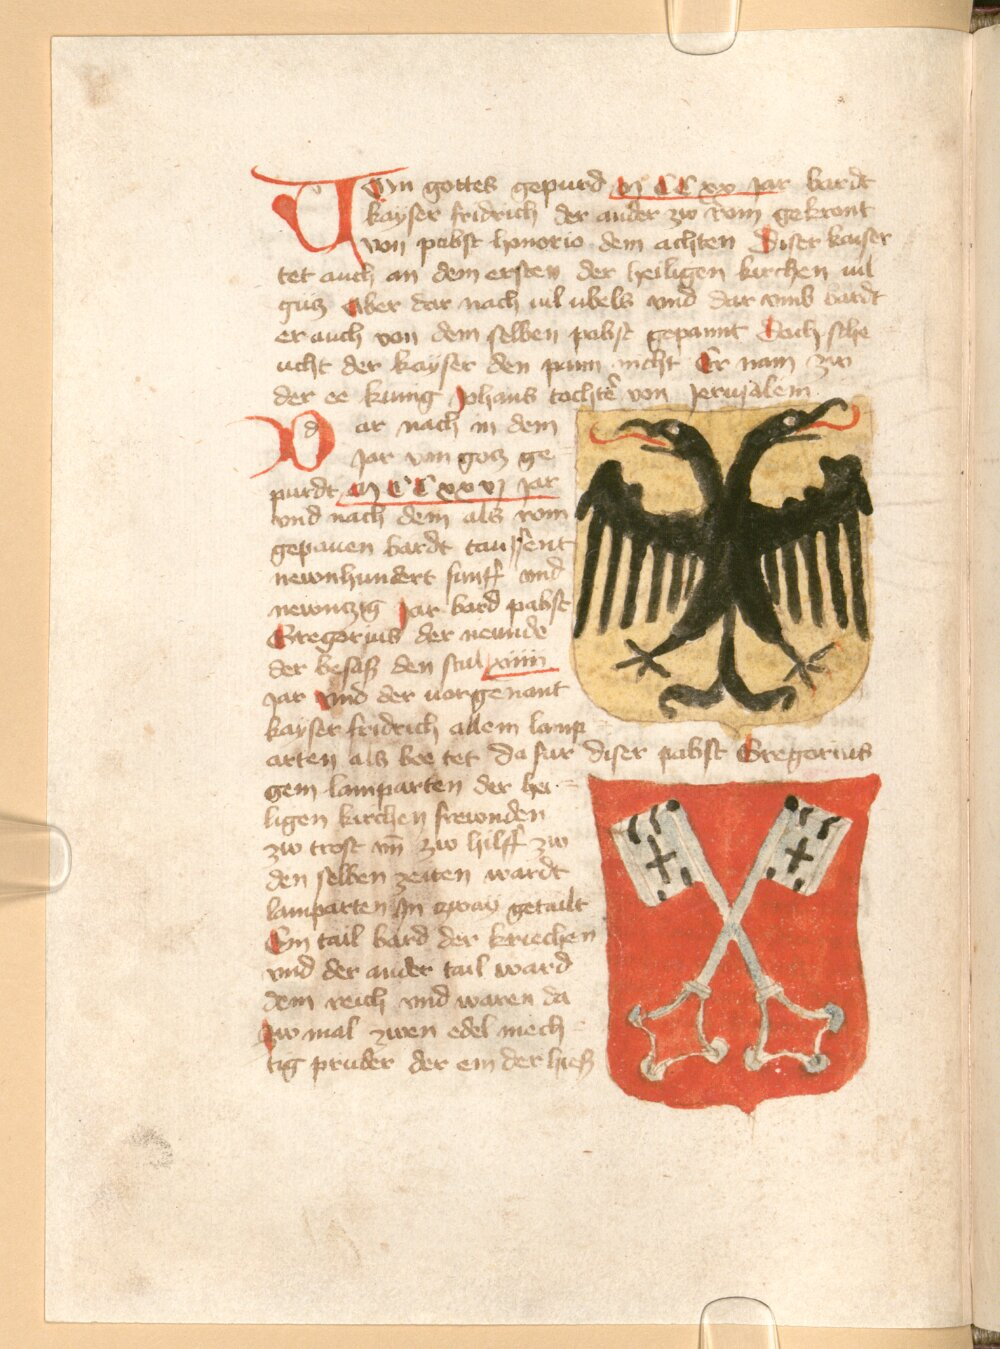 Von gottes gepurd M CC xx Jar bardt
kayser fridrich der ander zw Rom gekront
von pabst honorio dem achten Diser kaiser
tet auch an dem ersten der heiligen kirchen uil
gutz Aber dar nach uil ubels vnd dar vmb bardt
er auch von dem selben pabst gepannt Doch sche
ucht der kayser den pann nicht Er nam zw
der ee kunig Johans tochter von Jerusalem
Dar nach in dem
Jar von gotz ge
purdt M CC xxvj Jar
vnd nach dem als rom
gepauen bardt taussent
newnhundert funff vnd
newntzig Jar bard pabst
Gregorius der neunde
der besasz den stul xiiii
Jar vnd der uorgenant
kayser fridrich allem lamp
arten als bee tet da fur diser pabst Gregorius
gem lamparten der hei-
ligen kirchen frewnden
zw trost vn̄ zw hilff zw
den selben zeiten wardt
lamparten In zway getailt
Eyn tail bard der kriechen
vnd der ander tail ward
dem reich vnd waren da
zw mal zwen edel mech
tig pruder der ein der hiesz